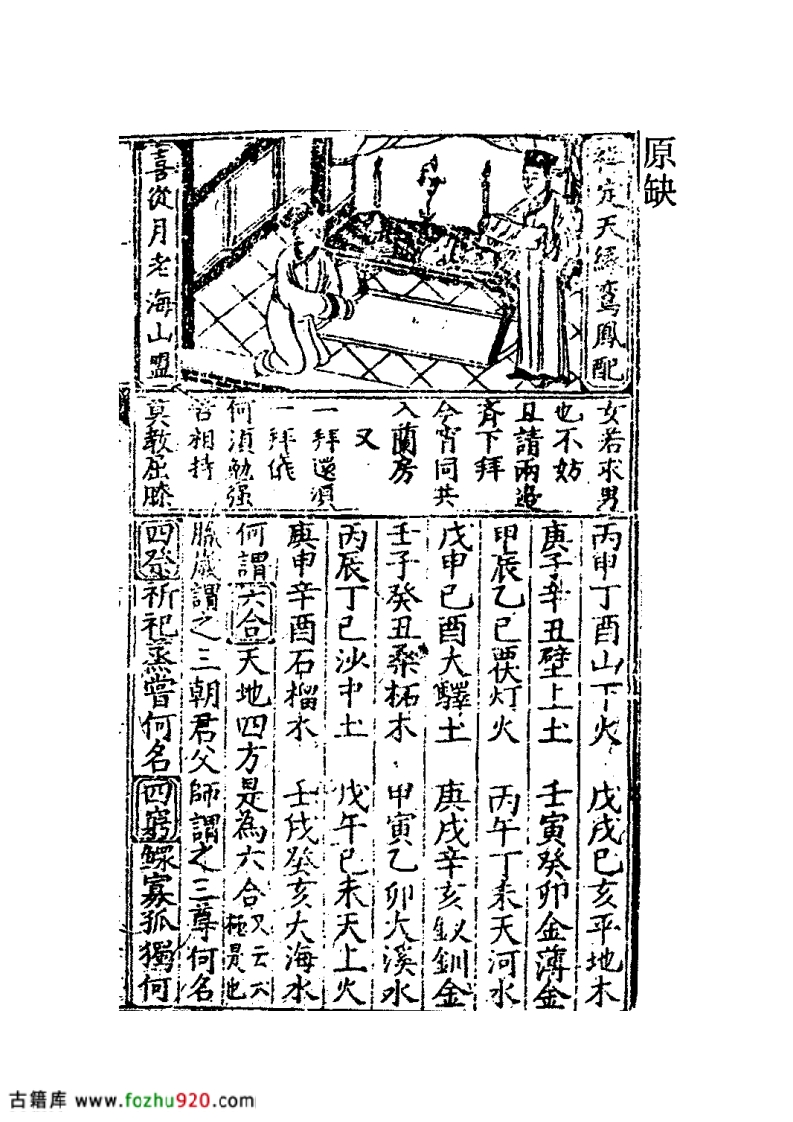 原缺
定天緣鸾鳳配
喜從月老海山盟
女若求男
也不妨
且請兩邊
齐下拜
今宵同共
入蘭房
又
一拜還須
一拜
何須勉强
苦相持
莫教屈膝
丙申丁酉山下火 戊戌己亥平地木
庚子辛丑壁上土 壬寅癸卯金薄金
甲辰乙巳覆灯火 丙午丁未天河水
戊申己酉大驛土 庚戌辛亥釵釧金
壬子癸丑桑柘木 甲寅乙卯大溪水
丙辰丁巳沙中土 戊午己未天上火
庚申辛酉石榴木 壬戌癸亥大海水
何謂六合天地四方是為六合又云六極是也
臘歲謂之三朝君父師謂之三尊何名
四祭祈祀蒸嘗何名四窮鰥寡孤獨何
古籍库 www.fozhu920.com